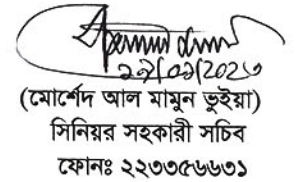 ২৯/০১/২০২৩
(মোর্শেদ আল মামুন ভুইয়া)
সিনিয়র সহকারী সচিব
ফোনঃ ২২৩৩৫৬৬৩১